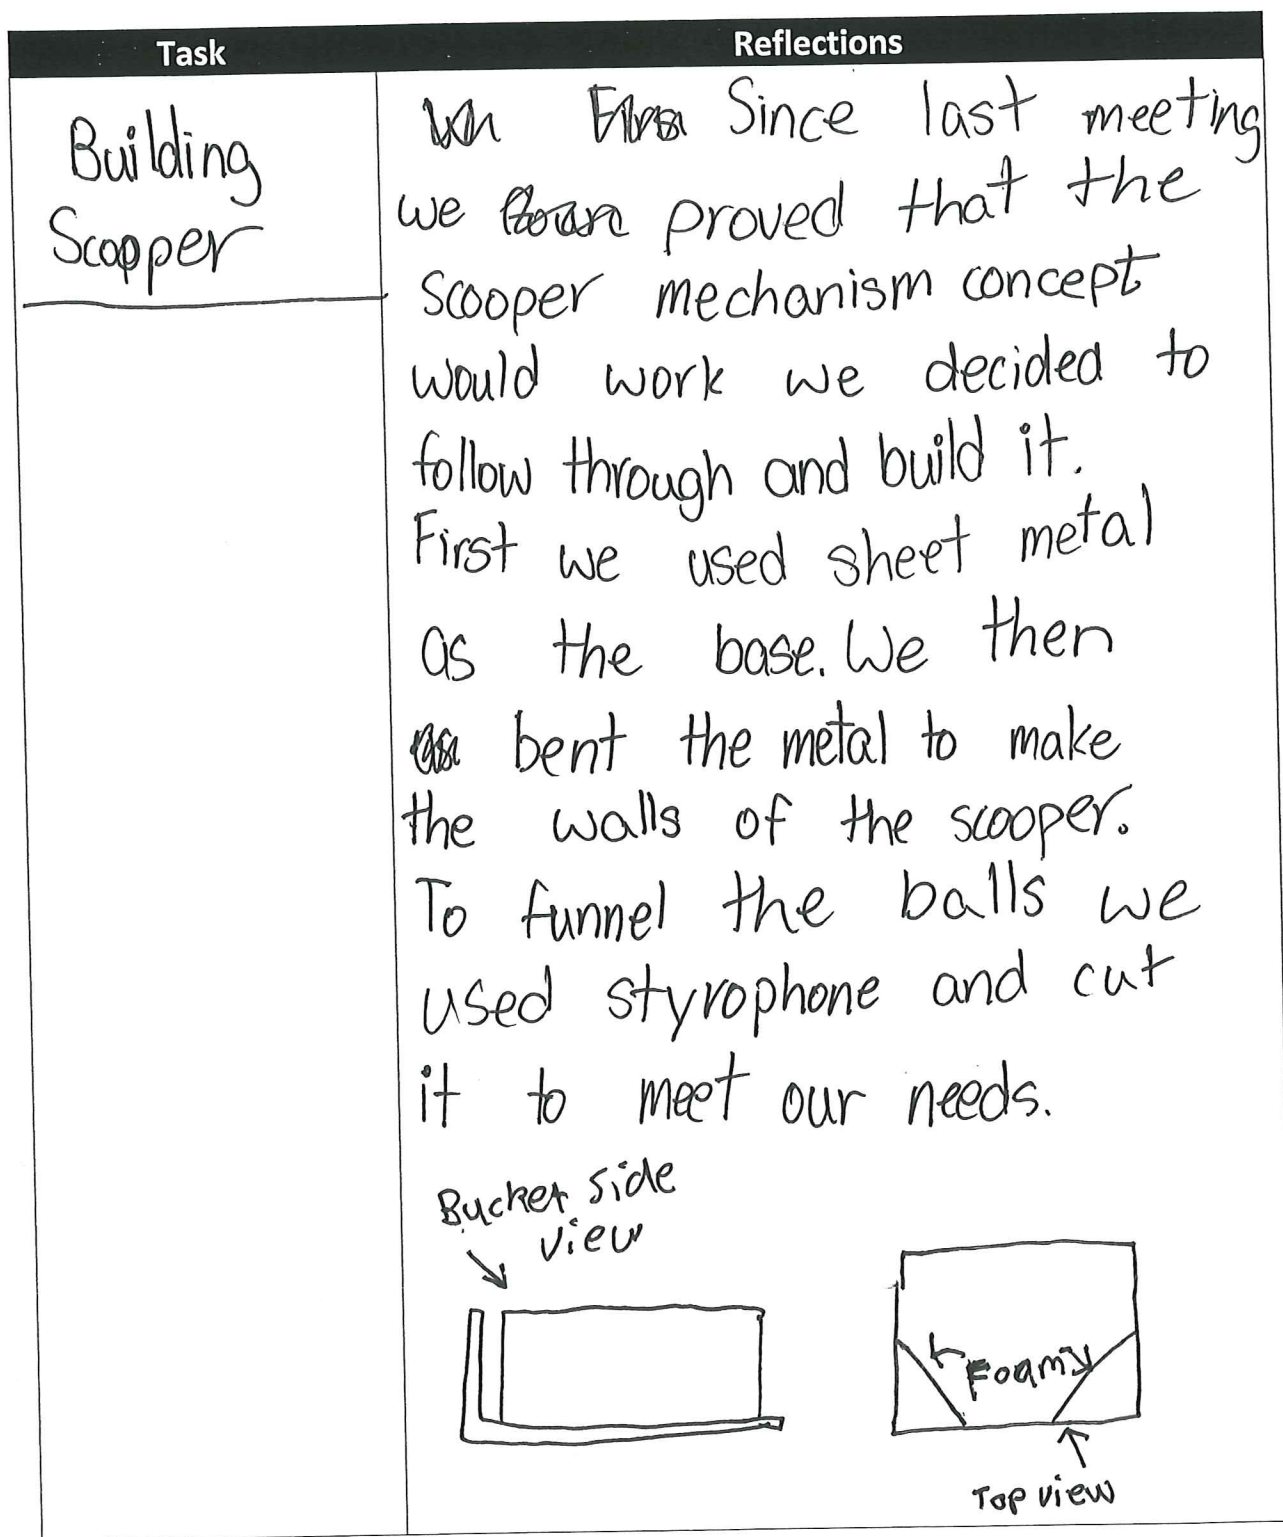 Task
Reflections
Building
Scopper
Since last meeting
we proved that the
scooper mechanism concept
would work we decided to
follow through and build it.
First we used sheet metal
as the base. We then
bent the metal to make
the walls of the scooper.
To funnel the balls we
used styrophone and cut
it to meet our needs.
Bucket side
view
Foam
Top view